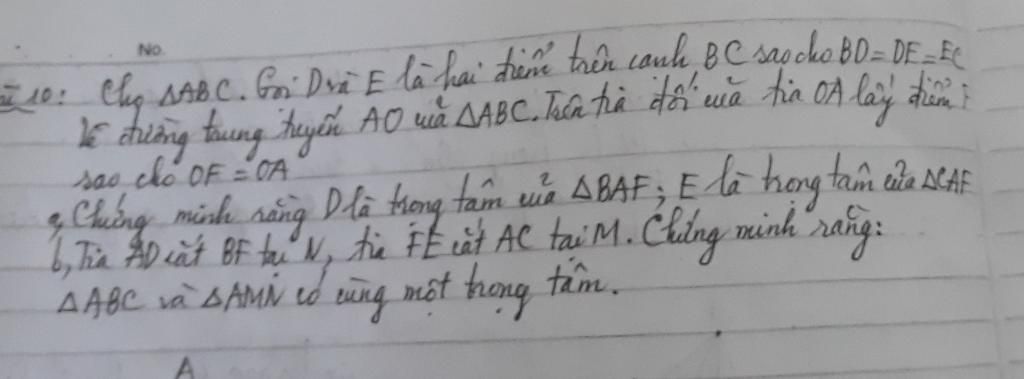 No.
10: Cho ΔABC. Gọi D và E là hai điểm trên cạnh BC sao cho BD = DE = EC
Kẻ đường trung tuyến AO của ΔABC. Trên tia đối của tia OA lấy điểm F
sao cho OF = OA
a, Chứng minh rằng D là trọng tâm của ΔBAF; E là trọng tâm của ΔCAF
b, Tia AD cắt BF tại N, tia FE cắt AC tại M. Chứng minh rằng:
ΔABC và ΔAMN có cùng một trọng tâm.
A